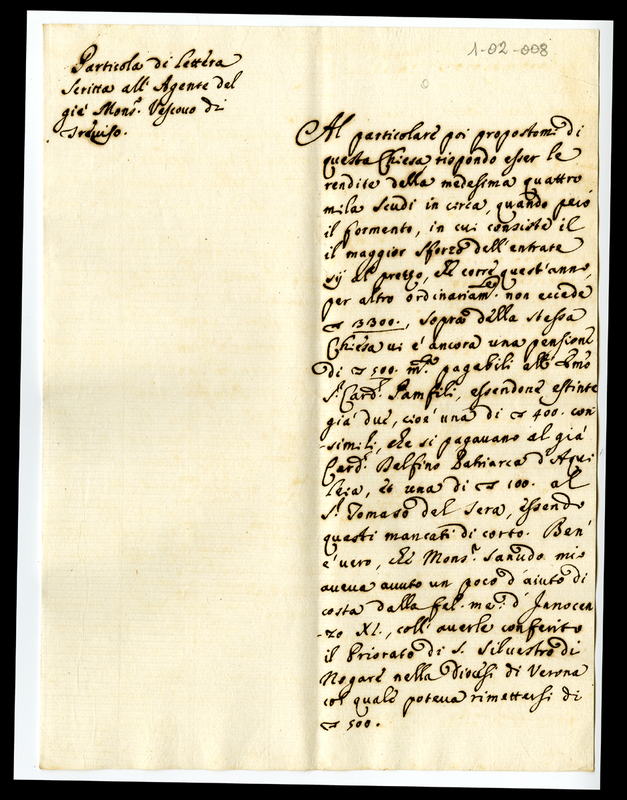 1-02-008
Particola di lettera
scritta all' Agente del
già Mons.r Vescovo di
Treviso.
Al particolare poi propostom.i di
questa Chiesa rispondo esser le
rendite della medesima quattro
mila scudi in circa, quando però
il formento, in cui consiste il
il maggior sforzo dell'entrate
sij al prezzo, che corre quest'anno,
per altro ordinariam.te non eccede
3300., sopra della stessa
Chiesa vi è ancora una pensione
di 500. m.ta pagabili all' Em̃o
S.r Card.l Pamfili, essendone estinte
già due, cioè una di 400. con-
-simili, che si pagavano al già
Card.l Delfino Patriarca d'Aqui
leia, et una di 100. al
S.r Tomaso del Sera, essendo
questi mancati di corto. Ben
è vero, che Mons.r Sanudo mio
aveva avuto un poco d'aiuto di
costa dalla fel. me. d'Innocen
-zo XI., coll' averle conferito
il Priorato di S. Silvestro di
Nogare nella Diocesi di Verona
col quale poteva rimettersi di
500.